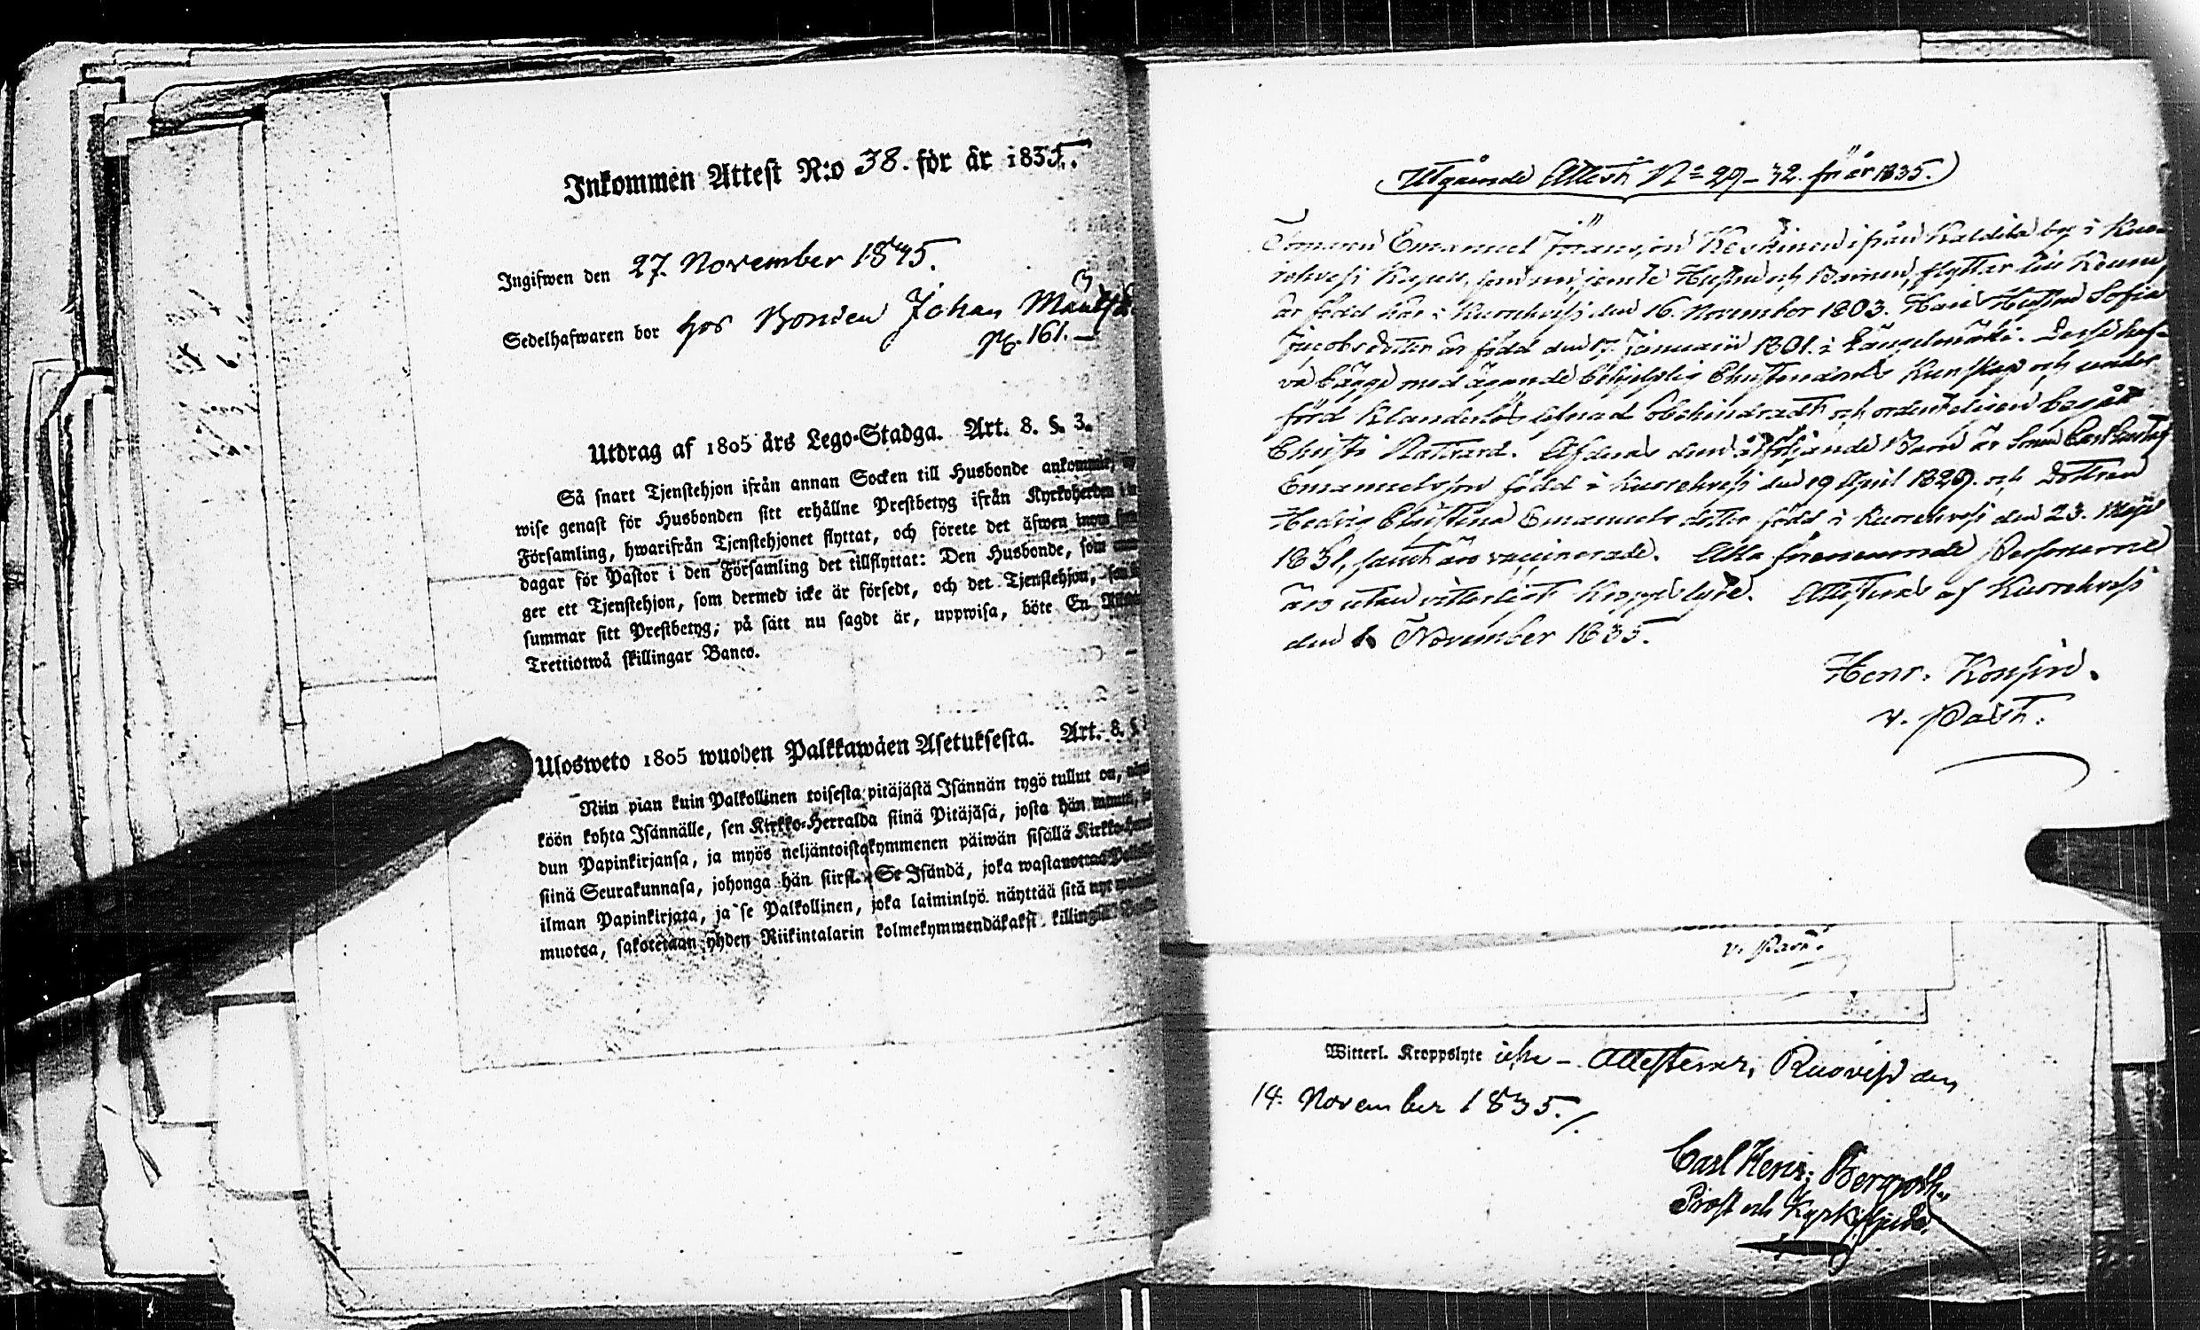 Inkommen Attest N:o 38. för år 1835.
Ingifwen den 27. November 1835.
Sedelhafwaren bor hos Bonden Johan
pg. 161.
Utdrag af 1805 års Lego-Stadga. Art. 8. §. 3.
Så snart Tjenstehjon ifrån annan Socken till Husbonde ankommit,
wise genast för Husbonden sitt erhållne Prestbetyg ifrån Kyrkoherden i
Församling, hwarifrån Tjenstehjonet flyttat, och förete det äfwen inom
dagar för Pastor i den Församling det tillflyttat: Den Husbonde, som
ger ett Tjenstehjon, som dermed icke är försedt, och det Tjenstehjon,
summar sitt Prestbetyg, på sätt nu sagdt är, uppwisa, böte En
Trettiotwå skillingar Banco.
Ulosweto 1805 wuoden Palkkawäen Asetuksesta. Art. 8. §.
Niin pian kuin Palkollinen toisesta pitäjästä Isännän tygö tullut on,
köön kohta Isännälle, sen Kirkko-Herralda siinä Pitäjäsä, josta hän
dun Papinkirjansa, ja myös neljäntoistakymmenen päiwän sisällä
siinä Seurakunnasa, johonga hän siirst. Se Isändä, joka
ilman Papinkirjata, ja se Palkollinen, joka laiminlyö näyttää sitä
muotoa, sakotetaan yhden Riikintalarin kolmekymmendäkaksi
Utgående Attest N:o 29-32. för år 1835.
Emanuel Johansson Keskinen ifrån by i
Capell, som nu jemte Hustru och Barnen, flyttar till
är född här i Kuorehvesi den 16. November 1803. Hans Hustru Sofia
Jacobsdotter är född den 17. Januarii 1801. i Längelmäki. Desse haf-
va bägge med ägande Christendoms Kunskap och under
förd klanderlös lefnad obehindradt och ordenteligen begått
Christi Nattvard. Af deras Barn är Sonen Carl Gustaf
Emanuelsson född i Kuorehvesi den 19 April 1829. och Dottren
Hedvig Christina Emanuels dotter född i Kuorehvesi den 23. Maji
1831, samt äro vaccinerade. Alla förenemnde Personerne
äro utan vitterligit Kroppslyte. Attesteras af Kuorehvesi
den November 1835.
Henr. Konsin.
v. Past.
v. Past.
Witterl. Kroppslyte icke – Attesterar, Ruovesi den
14. November 1835./.
Carl Henr. Bergroth.
Prost och Kyrkoherde.